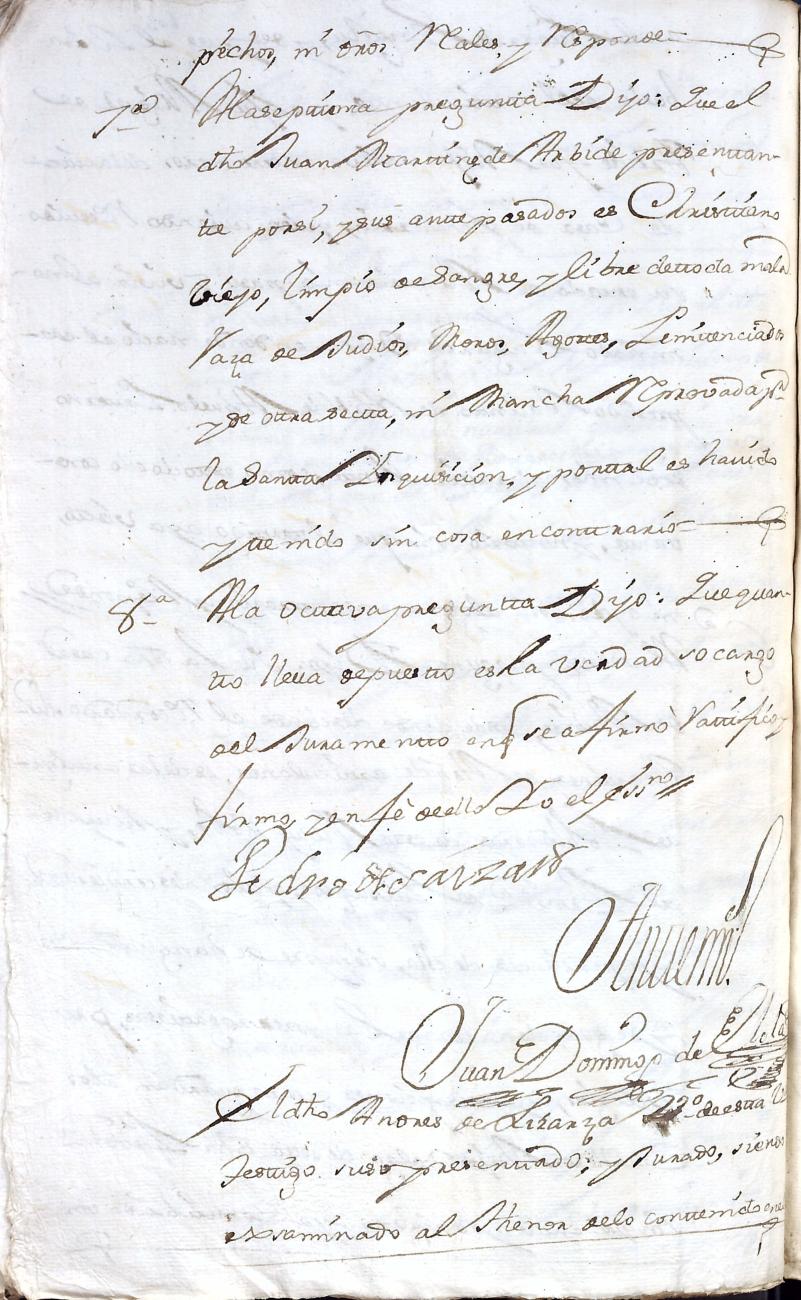 pechos, ni dros Rales, y Responde
7.ª Ala septtima preguntta Dijo: Que el
dho Juan Martinez de Arbide presenttan-
tte porsi, y sus antte pasados es Christtiano
viejo, limpio de Sangre, y libre de ttoda mala
Raza de Judios, Moros, Agottes, Penittenciados
y de ottra sectta, ni Mancha Reprovada pr
la Santta Inquisicion, y por ttal es havido
y ttenido sin cosa en conttrario
8.ª Ala octtava preguntta Dijo: Que quan-
tto lleva depuestto es la verdad so cargo
del Juramentto en q se afirmò Rattificò, y
firmo, y en fè de ello Yo el essno
Pedro de Oarzaro
Antte mi
Juan Domingo de
El dho Andres de Lizarza Vzo de estta
Testtigo suso presenttado, y Jurado, siendo
exsaminado al Thenor de lo conttenido en